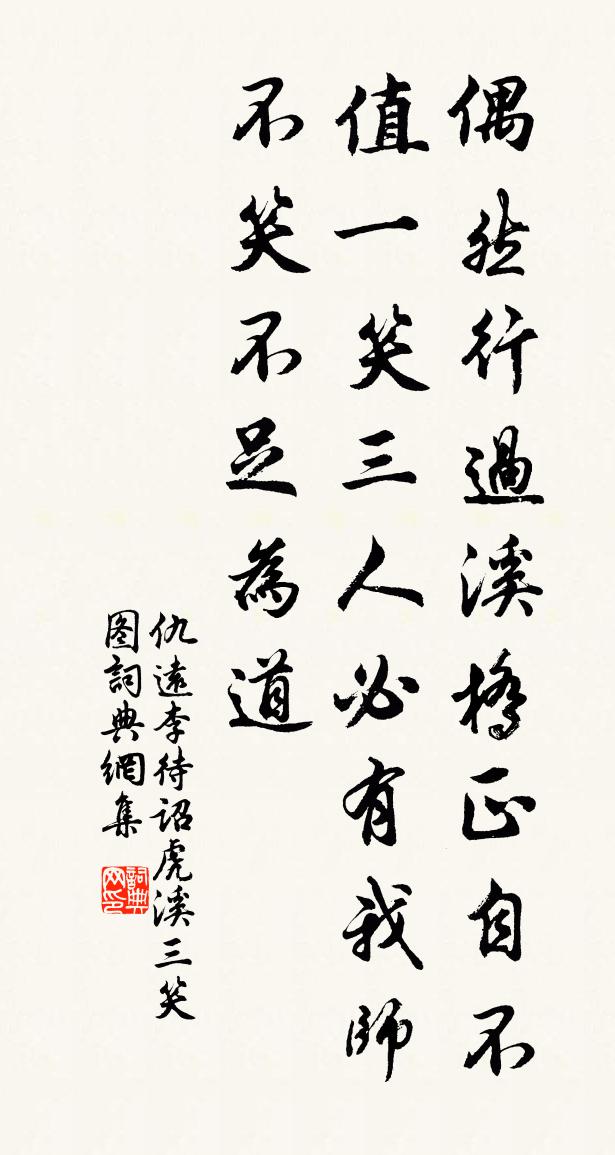 偶然行過溪橋正自不
值一笑三人必有我師
不笑不足為道
仇遠李待詔虎溪三笑
图詞典網集
詞典
网印